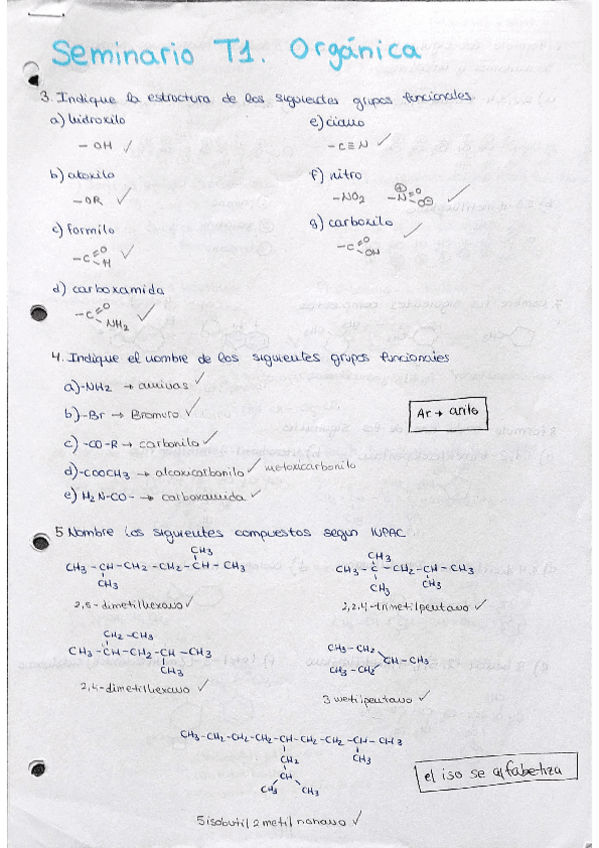 Seminario T1. Orgánica
3. Indique la estructura de los siguientes grupos funcionales
a) hidroxilo
- OH ✓
b) aloxilo
- OR ✓
c) formilo
- C=O
H ✓
d) carboxamida
- C=O
NH2 ✓
e) ciano
- C≡N ✓
f) nitro
- NO2 - N=O
O ✓
g) carboxilo
- C=O
OH ✓
4. Indique el nombre de los siguientes grupos funcionales
a) -NH2 → aminas ✓
b) -Br → Bromuro ✓
c) -CO-R → carbonilo ✓
d) -COOCH3 → alcoxicarbonilo ✓ metoxicarbonilo
e) H2N-CO- → carboxamida ✓
Ar → arilo
5 Nombre los siguientes compuestos según IUPAC
CH3
CH3 - CH - CH2 - CH2 - CH - CH3
CH3
2,5-dimetilhexano ✓
CH3
CH3 - C - CH2 - CH - CH3
CH3 CH3
2,2,4-trimetilpentano ✓
CH2 - CH3
CH3 - CH - CH2 - CH - CH3
CH3
2,4-dimetilhexano ✓
CH3 - CH2
CH - CH3
CH3 - CH2
3 metilpentano ✓
CH3 - CH2 - CH2 - CH2 - CH - CH2 - CH2 - CH - CH3
CH2 CH3
CH
CH3 CH3
5 isobutil 2 metil nonano ✓
el iso se alfabetiza